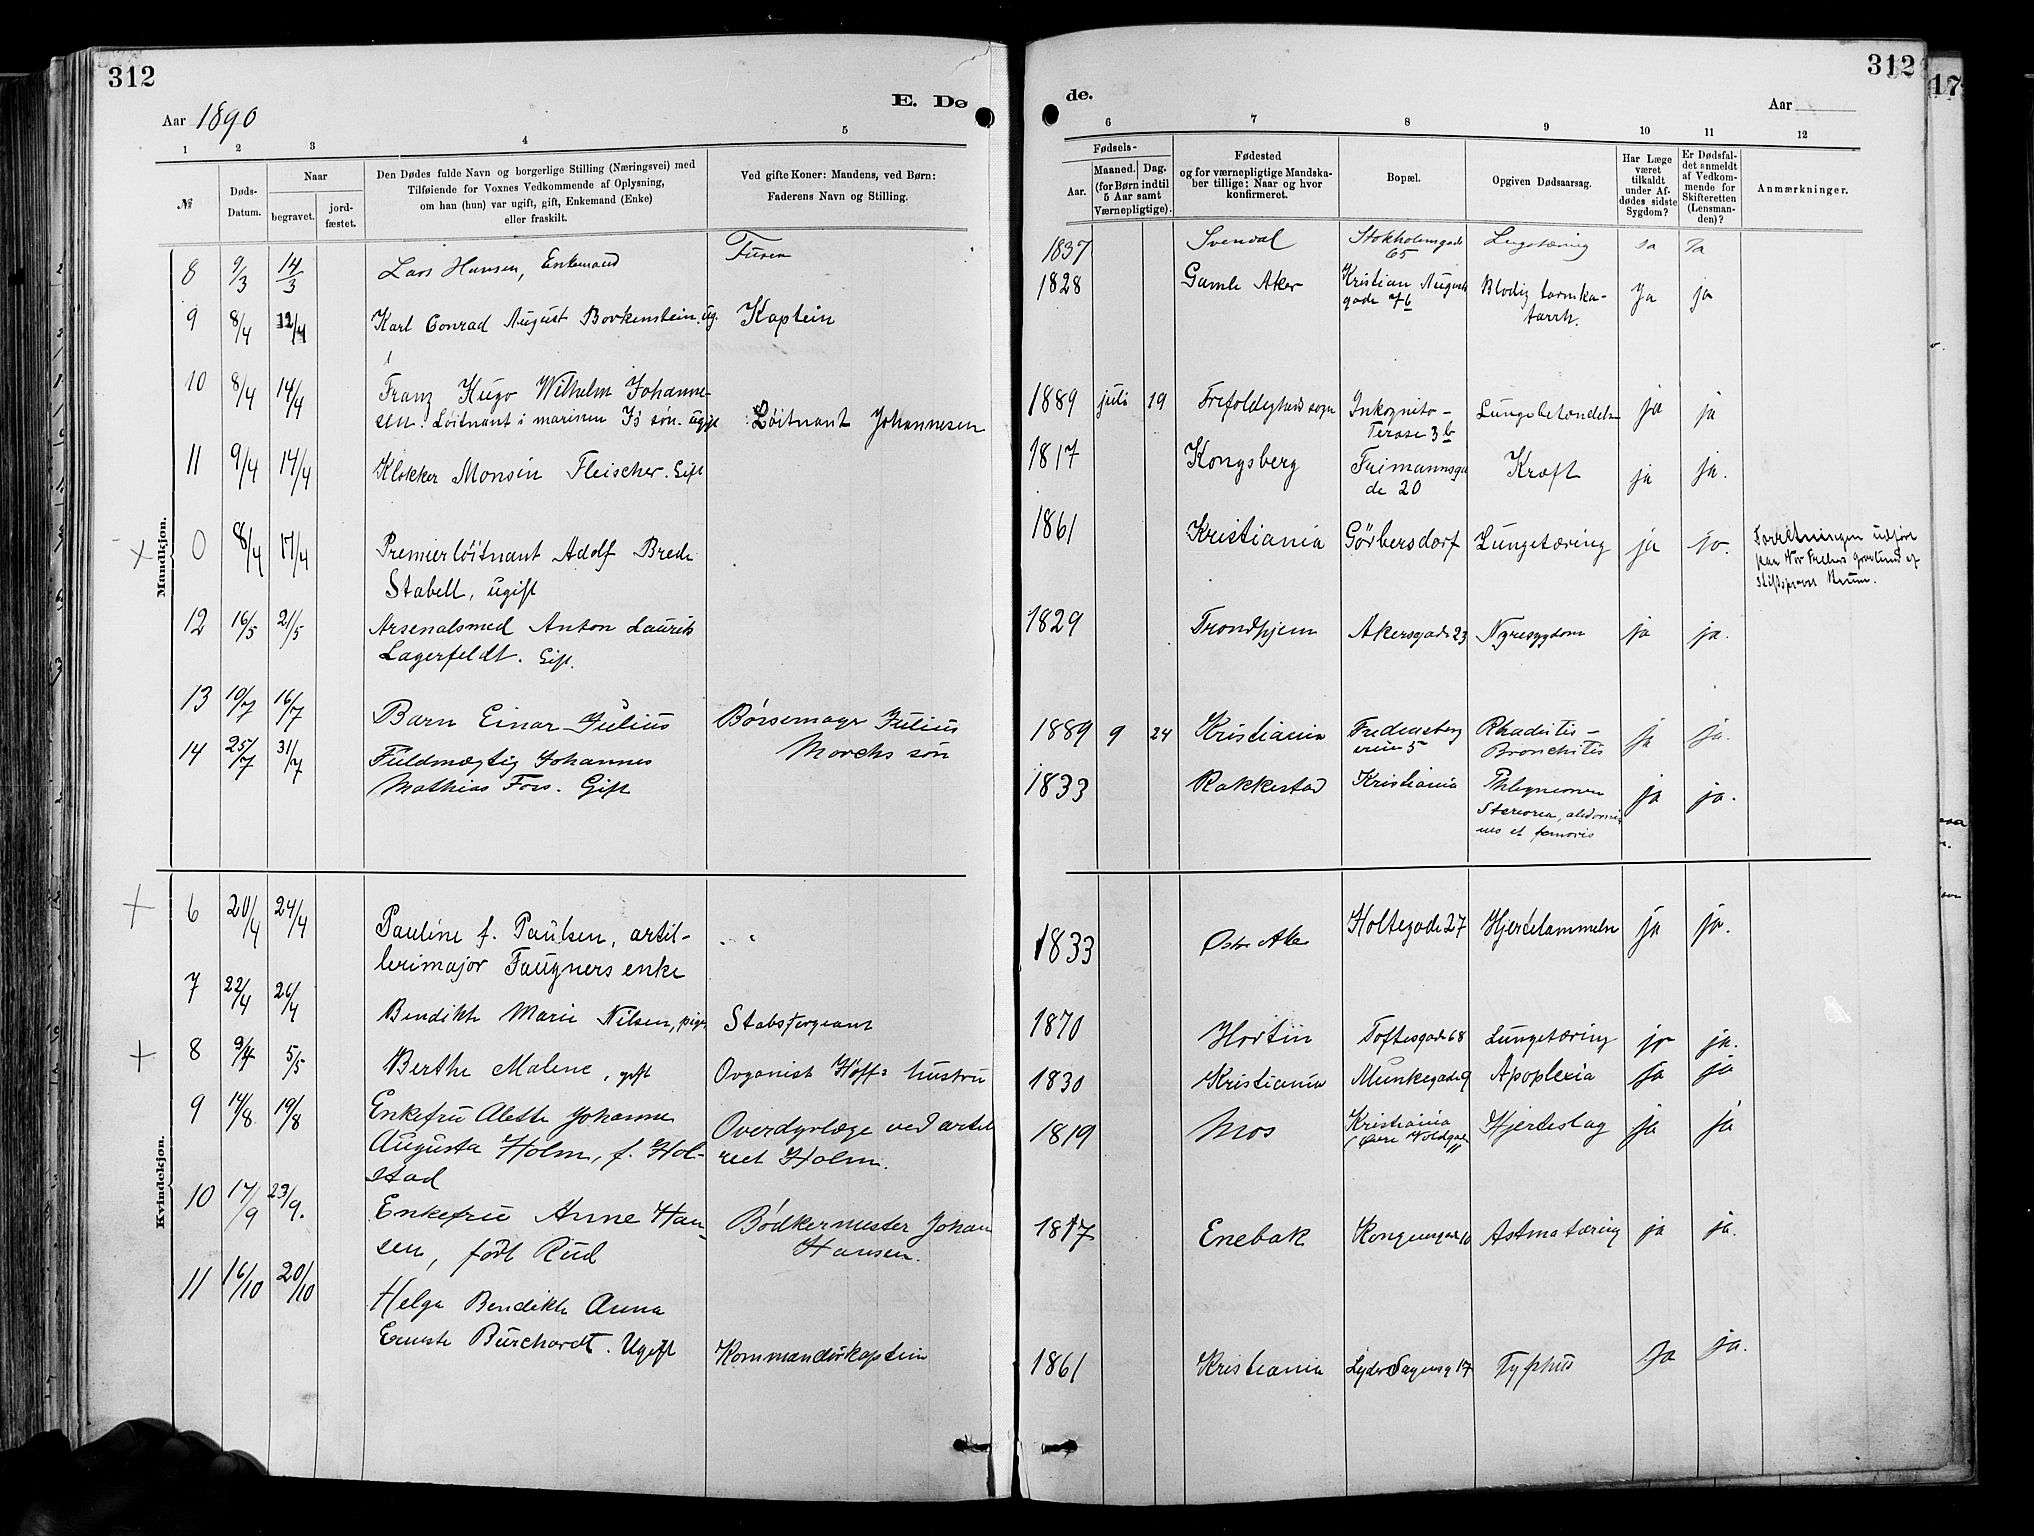 312
Aar 1890
E. Dø
1 2 3 4 5
№
Døds-
Datum.
Naar
begravet.
jord-
fæstet.
Den Dødes fulde Navn og borgerlige Stilling (Næringsvei) med
Tilføiende for Voxnes Vedkommende af Oplysning,
om han (hun) var ugift, gift, Enkemand (Enke)
eller fraskilt.
Ved gifte Koner: Mandens, ved Børn:
Faderens Navn og Stilling.
Mandkjøn.
8 9/3 14/3 Lars Hansen, Enkemand
9 8/4 12/4 Karl Conrad August Borkenstein. ug. Kaptein
10 8/4 14/4 Franz Hugo Wilhelm Johanne-
sen. Løitnant i marinen J's søn. ugift Løitnant Johannesen
11 9/4 14/4 Klokker Monsin Fleischer. Gift
0 8/4 17/4 Premierløitnant Adolf Brede
Stabell, ugift
12 16/5 21/5 Arsenalsmed Anton Laurits
Lagerfeldt. Gift.
13 10/7 16/7 Barn Einar Julius Børsemager Julius
Morchs søn
14 25/7 31/7 Fuldmægtig Johannes
Mathias Fors. Gift
Kvindekjøn.
6 20/4 24/4 Pauline f. Paulsen, artil-
lerimajor Faugners enke
7 22/4 26/4 Bendikte Marie Nilsen, pige Stabssergeant
8 5/5 Berthe Malene, gift Organist Hoffs hustru
9 14/8 19/8 Enkefru Alette Johanne
Augusta Holm, f. Hol-
stad
Overdyrlæge ved artil
riet Holm.
10 17/9 23/9. Enkefru Anne Han-
sen, født Rud
Bødkermester Johan
Hansen.
11 16/10 20/10 Helga Bendikte Anna
Erneste Burchardt. Ugift Kommandørkaptein
312
17
de.
Aar
6 7 8 9 10 11 12
Fødsels-
Aar.
Maaned. Dag.
(for Børn indtil
5 Aar samt
Værnepligtige).
Fødested
og for værnepligtige Mandska-
ber tillige: Naar og hvor
konfirmeret.
Bopæl.
Opgiven Dødsaarsag.
Har Læge
været
tilkaldt
under Af-
dødes sidste
Sygdom?
Er Dødsfal-
det anmeldt
af Vedkom-
mende for
Skifteretten
(Lensman-
den)?
Anmærkninger.
1837 Svendal Stokholmsgade
65 Lungetæring Ja Ja
1828 Gamle Aker Kristian Augusts
gade 7b Blodig tarmka-
tarrh. Ja ja
1889 juli 19 Trefoldigheds sogn Inkognito-
Terase 3b Lungebetændelse ja ja
1817 Kongsberg Frimannsga
de 20 Kræft ja ja.
1861 Kristiania Görbersdorf Lungetæring ja ja.
Forretningen udført
paa Vor Frelsers gravlund af
stiftsprovst
1829 Trondhjem Akersgade 23 Nyresygdom ja ja.
1889 9 24 Kristiania Fredensborg
veien 5 Rhachitis -
Bronchitis ja ja.
1833 Rakkestad Kristiania Phlegmone
abdomi
nis et femoris ja ja.
1833 Østre Aker Holtegade 27 Hjertelammelse ja ja.
1870 Hortin Toftesgade 68 Lungetæring ja ja.
1830 Kristiania Munkegade 9 Apoplexia ja ja
1819 Mos Kristiania
(Øvre Voldgade 11 Hjerteslag ja ja
1817 Enebak Kongensgade 10 Astma tæring ja ja.
1861 Kristiania Lyder Sagensg 17 Typhus ja ja.